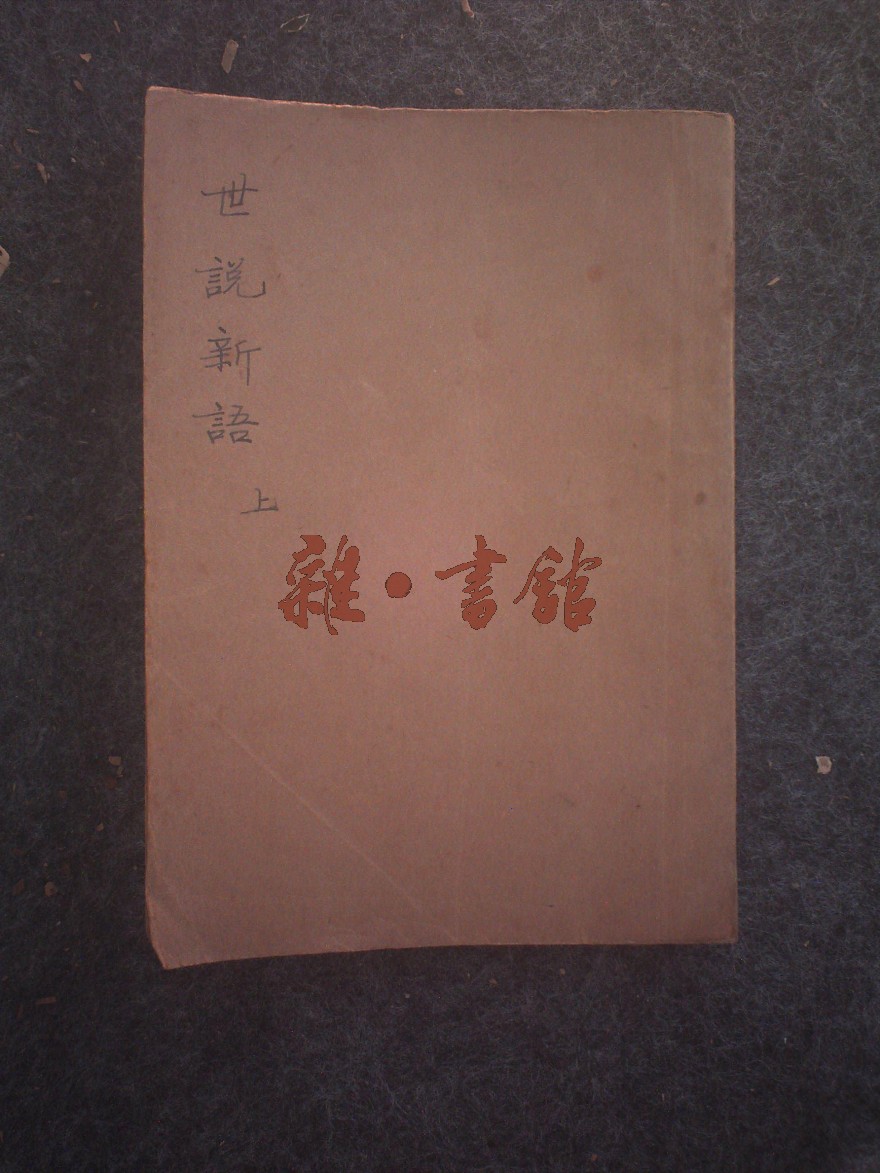 世說新語
上
雜·書館